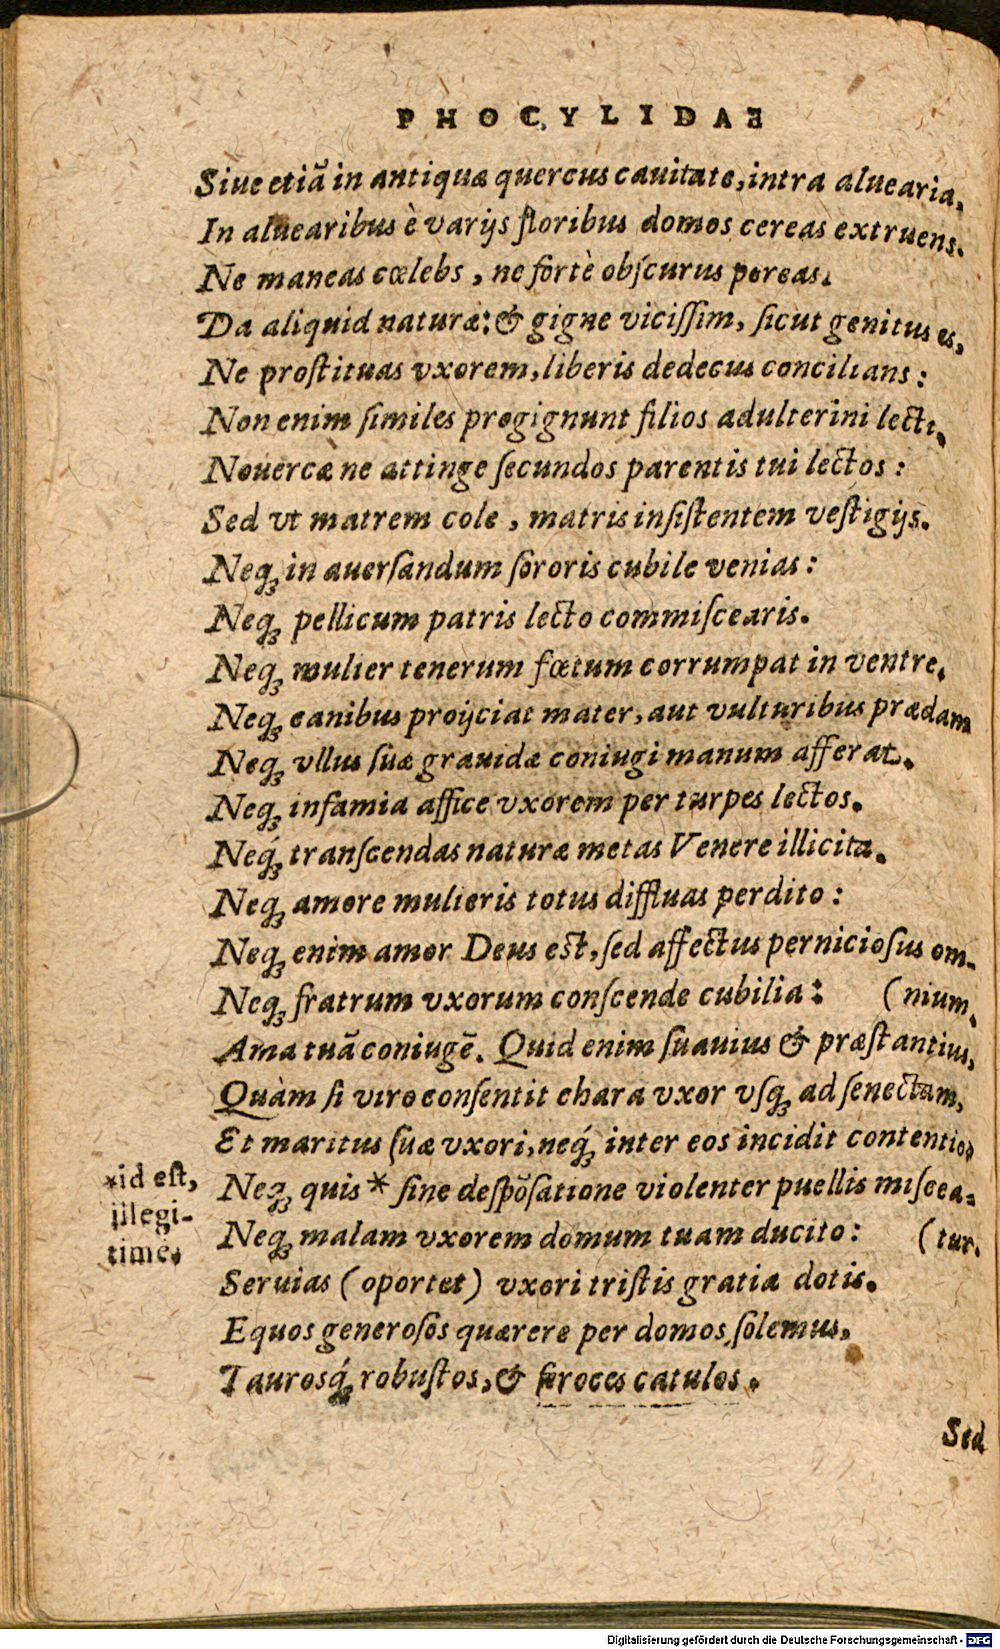 PHOCYLIDAE
Siue etiã in antiquæ quercus cauitate, intra aluearia,
In aluearibus è varijs floribus domos cereas extruens.
Ne maneas cœlebs, ne fortè obſcurus pereas.
Da aliquid naturæ: & gigne viciſſim, ſicut genitus es,
Ne proſtituas vxorem, liberis dedecus concilians:
Non enim ſimiles progignunt filios adulterini lecti.
Nouercæ ne attinge ſecundos parentis tui lectos:
Sed vt matrem cole, matris inſiſtentem veſtigijs.
Neqꝫ in auerſandum ſororis cubile venias:
Neqꝫ pellicum patris lecto commiſcearis.
Neqꝫ mulier tenerum fœtum corrumpat in ventre.
Neqꝫ canibus proijciat mater, aut vulturibus prædam
Neqꝫ vllus ſuæ grauidæ coniugi manum afferat.
Neqꝫ infamia affice vxorem per turpes lectos.
Neqꝫ́ tranſcendas naturæ metas Venere illicita.
Neqꝫ amore mulieris totus diffluas perdito:
Neqꝫ enim amor Deus eſt, ſed affectus pernicioſus om-
Neqꝫ fratrum vxorum conſcende cubilia: (nium.
Ama tuã coniugẽ. Quid enim ſuauius & præſtantius,
Quàm ſi viro conſentit chara vxor vſqꝫ ad ſenectam,
Et maritus ſuæ vxori, neqꝫ́ inter eos incidit contentio?
*id eſt,
illegi-
time.
Neqꝫ quis * ſine deſpõſatione violenter puellis miſcea-
Neqꝫ malam vxorem domum tuam ducito: (tur.
Seruias (oportet) vxori triſtis gratia dotis.
Equos generoſos quærere per domos ſolemus,
Taurosqꝫ́ robuſtos, & feroces catulos.
Sed
Digitalisierung gefördert durch die Deutsche Forschungsgemeinschaft - DFG